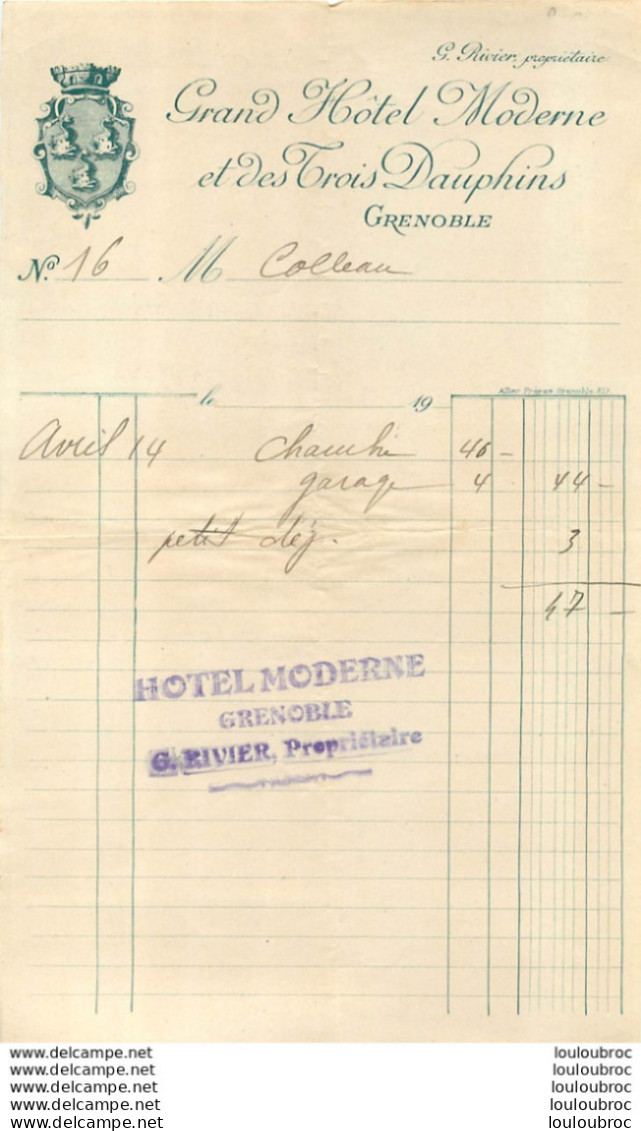 G. Rivier, propriétaire
Grand Hôtel Moderne
et des Trois Dauphins
GRENOBLE
No. 16 M Colleau
le 19
Allier Père Grenoble
Avril 14 chambre 40 -
garage 4 44 -
petit déj. 3
47 -
HOTEL MODERNE
GRENOBLE
G. RIVIER, Propriétaire
www.delcampe.net louloubroc
www.delcampe.net louloubroc
www.delcampe.net louloubroc
www.delcampe.net louloubroc
www.delcampe.net louloubroc